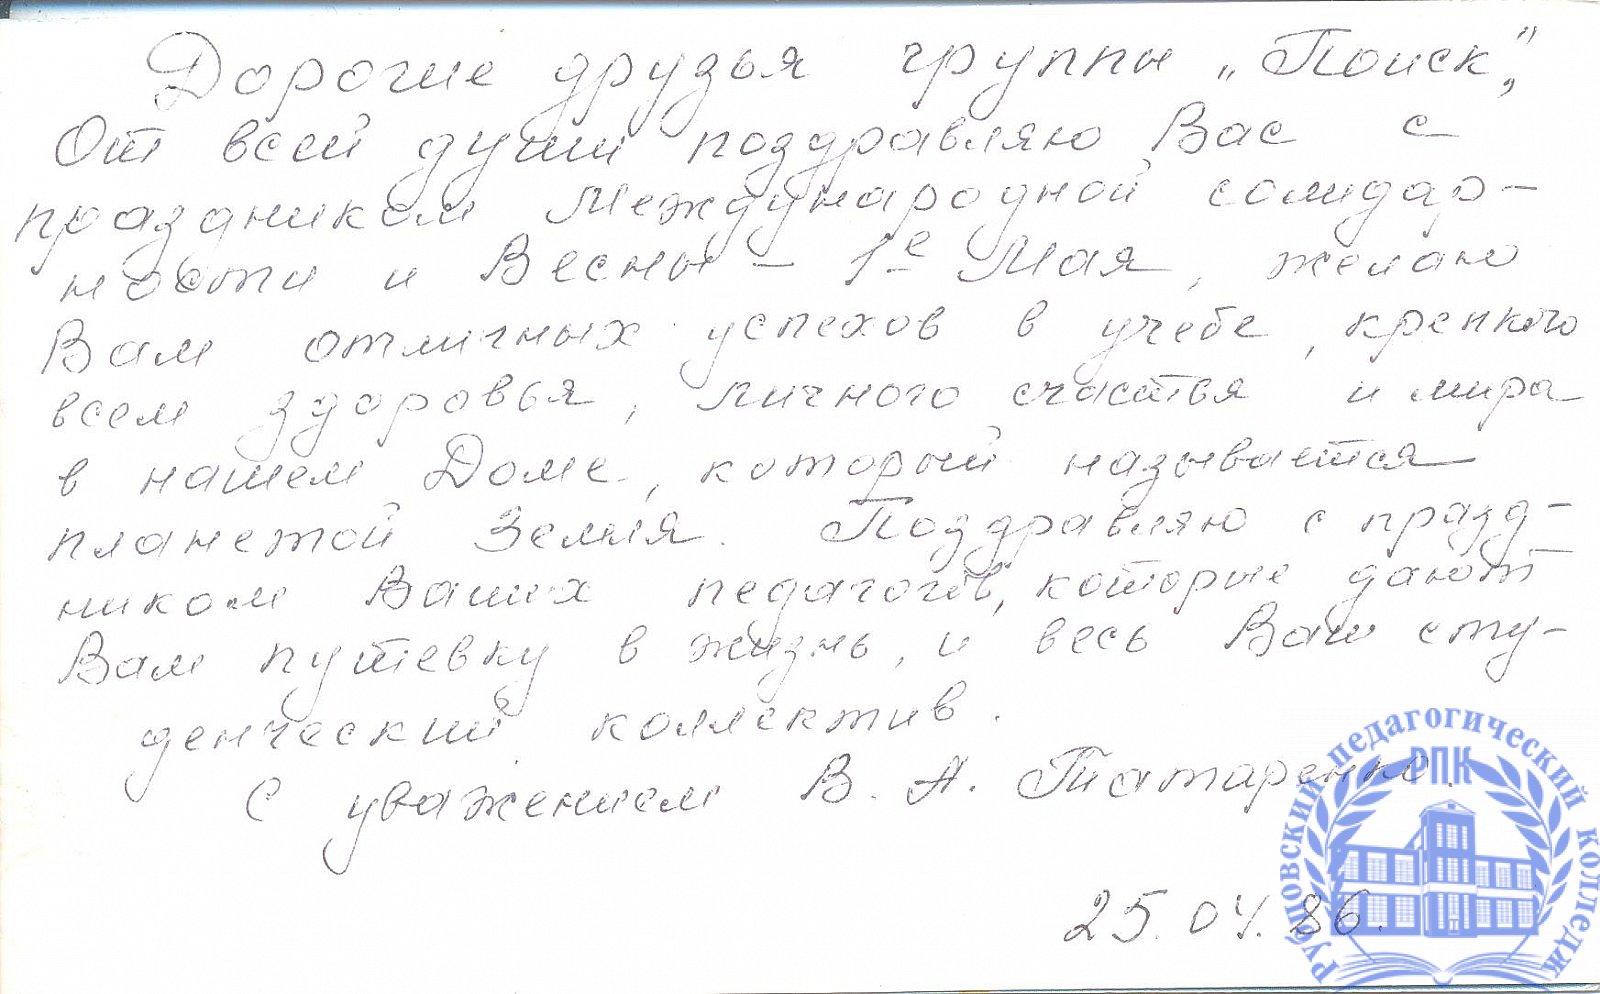 Дорогие друзья группы „Поиск”,
От всей души поздравляю Вас с
праздником Международной солидар-
ности и Весны – 1е Мая, желаю
Вам отличных успехов в учебе, крепкого
всем здоровья, личного счастья и мира
в нашем Доме, который называется
планетой Земля. Поздравляю с празд-
ником Ваших педагогов, которые дают
Вам путевку в жизнь, и весь Ваш сту-
денческий коллектив.
С уважением В. А. Татаренко.
25.04.86.
Рубцовский педагогический колледж
РПК